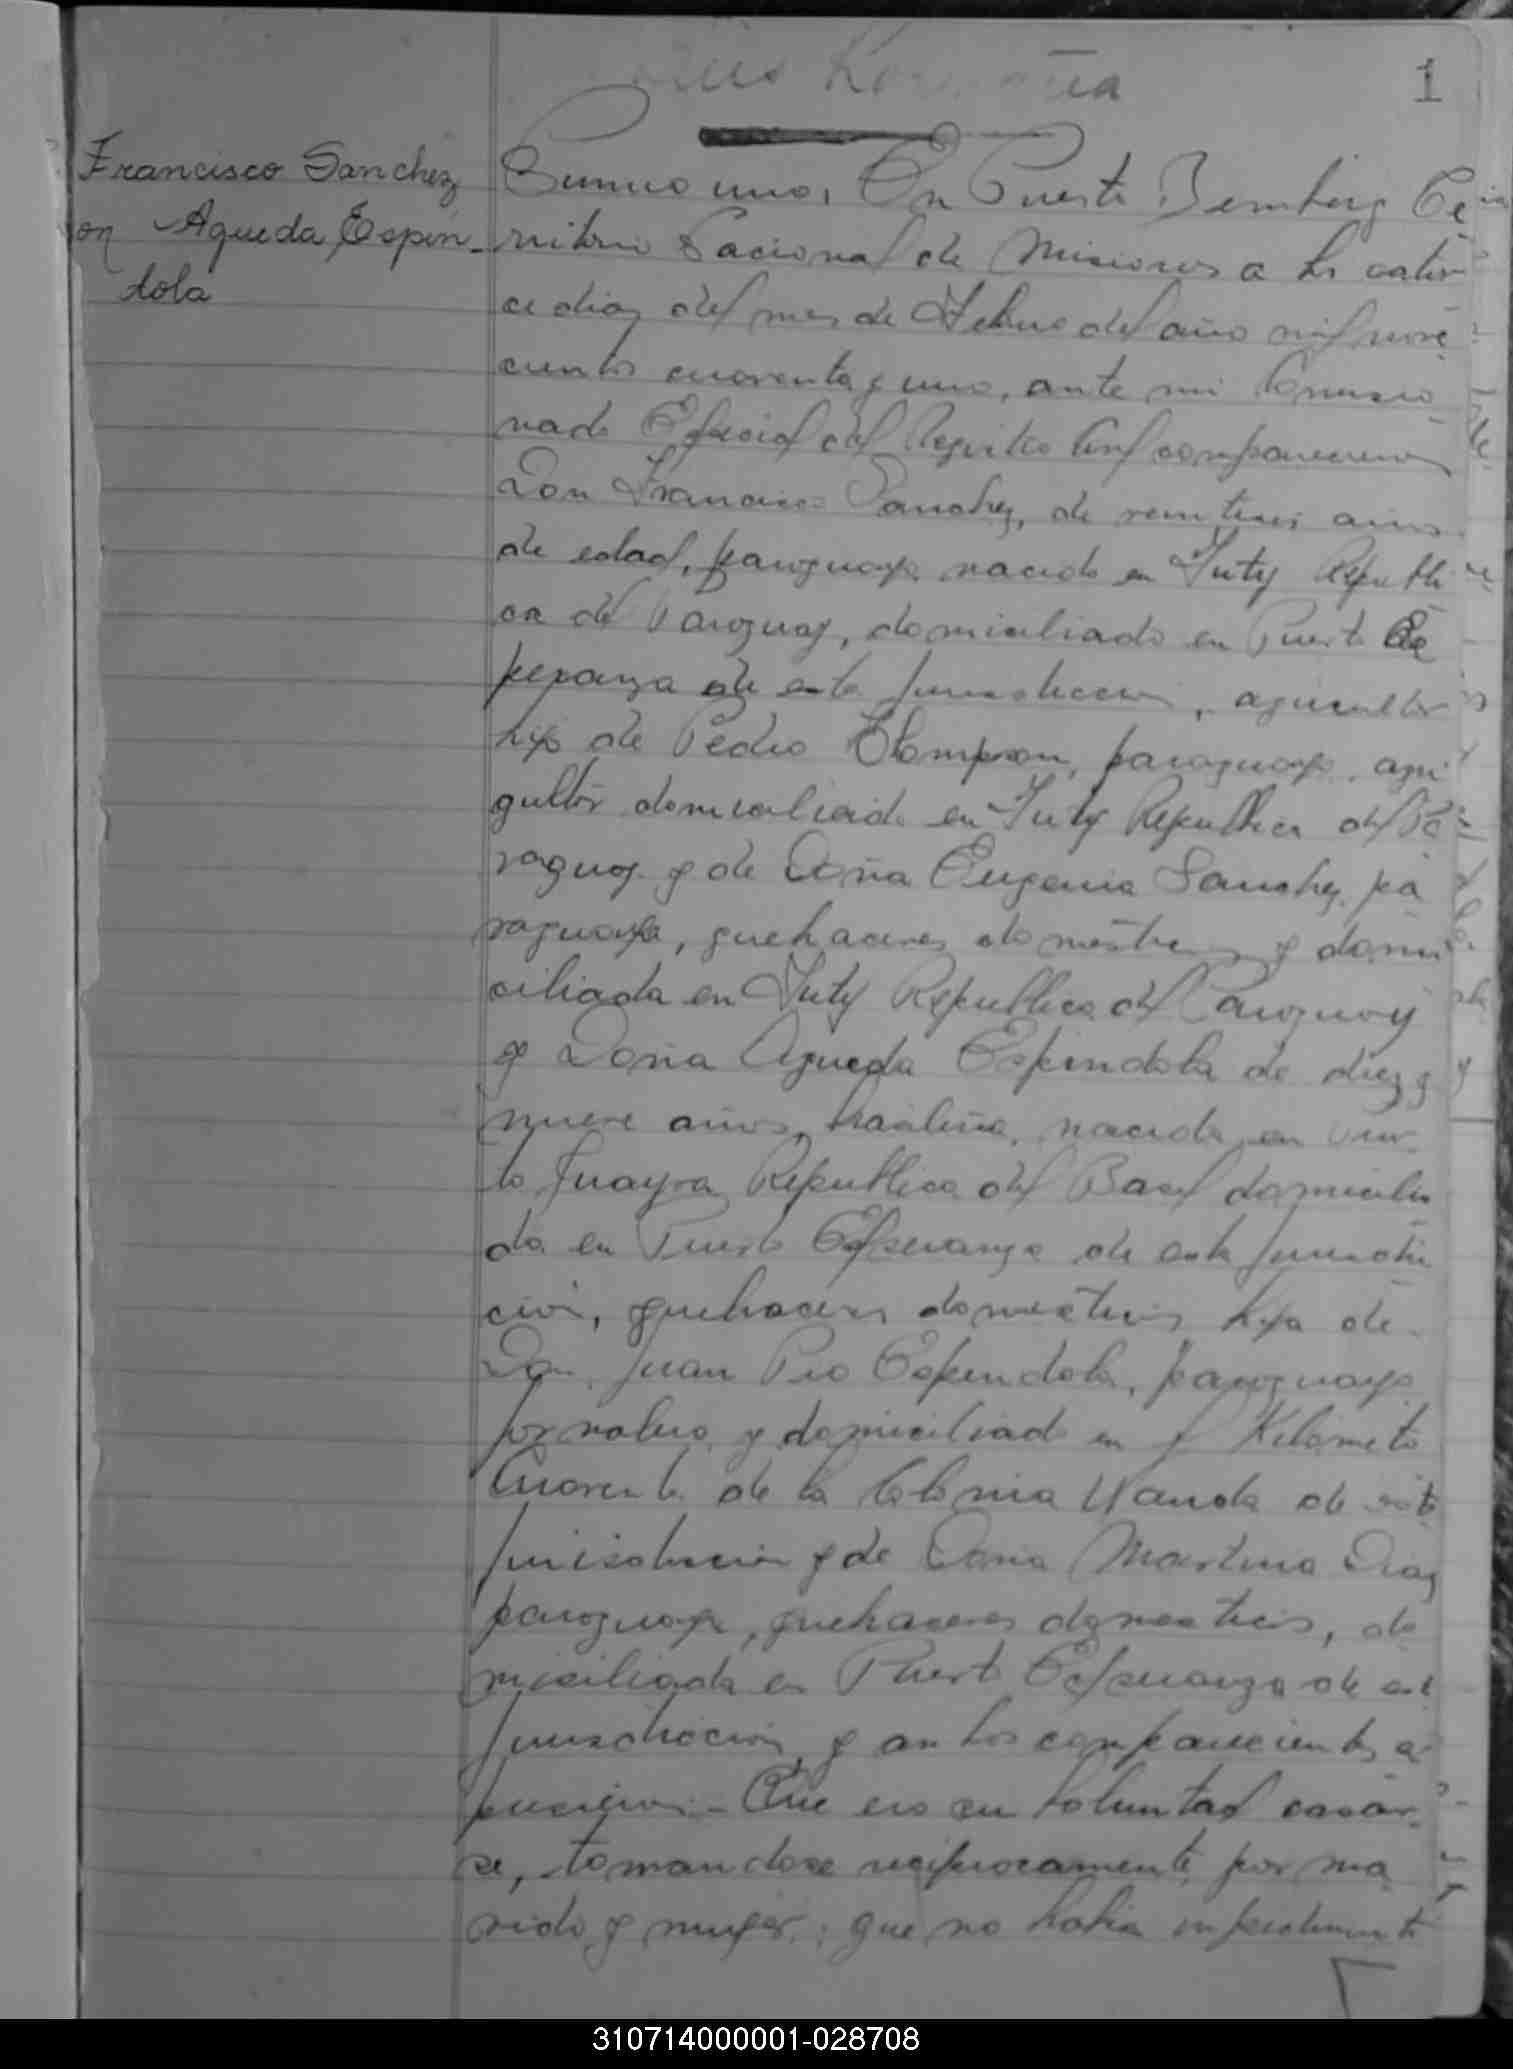 1
Francisco Sanchez
con Agueda Espín-
dola
Numero uno. En Puerto Bemberg Te
rritorio Nacional de Misiones a los cator
ce dias del mes de Febrero del año mil nove
cientos cuarenta y uno, ante mi Comisio
nado Especial del Registro Civil comparecieron
Don Francisco Sanchez, de años
de edad, paraguayo nacido en Yuty Republi
ca del Paraguay, domiciliado en Puerto Es
peranza de esta jurisdiccion, agricultor
hijo de Pedro paraguayo, agri
cultor domiciliado en Yuty Republica del Pa
raguay y de Doña Eugenia Sanchez, pa
raguaya, quehaceres domesticos y domi
ciliada en Yuty Republica del Paraguay
y Doña Agueda Espindola de diez y
nueve años, brasileña, nacida en Puer
to Guayra Republica del Brasil domicilia
da en Puerto Esperanza de esta jurisdic
cion, quehaceres domesticos hija de
Don Juan Pio Espindola, paraguayo
jornalero y domiciliado en el Kilometro
Cuarenta de la Colonia Wanda de esta
jurisdiccion y de Doña Martina Diaz
paraguaya, quehaceres domesticos, do
miciliada en Puerto Esperanza de esta
jurisdiccion y ambos comparecientes e
xpusieron. Que era su voluntad casar
se, tomandose reciprocamente por ma
rido y mujer; que no habia impedimento
310714000001-028708